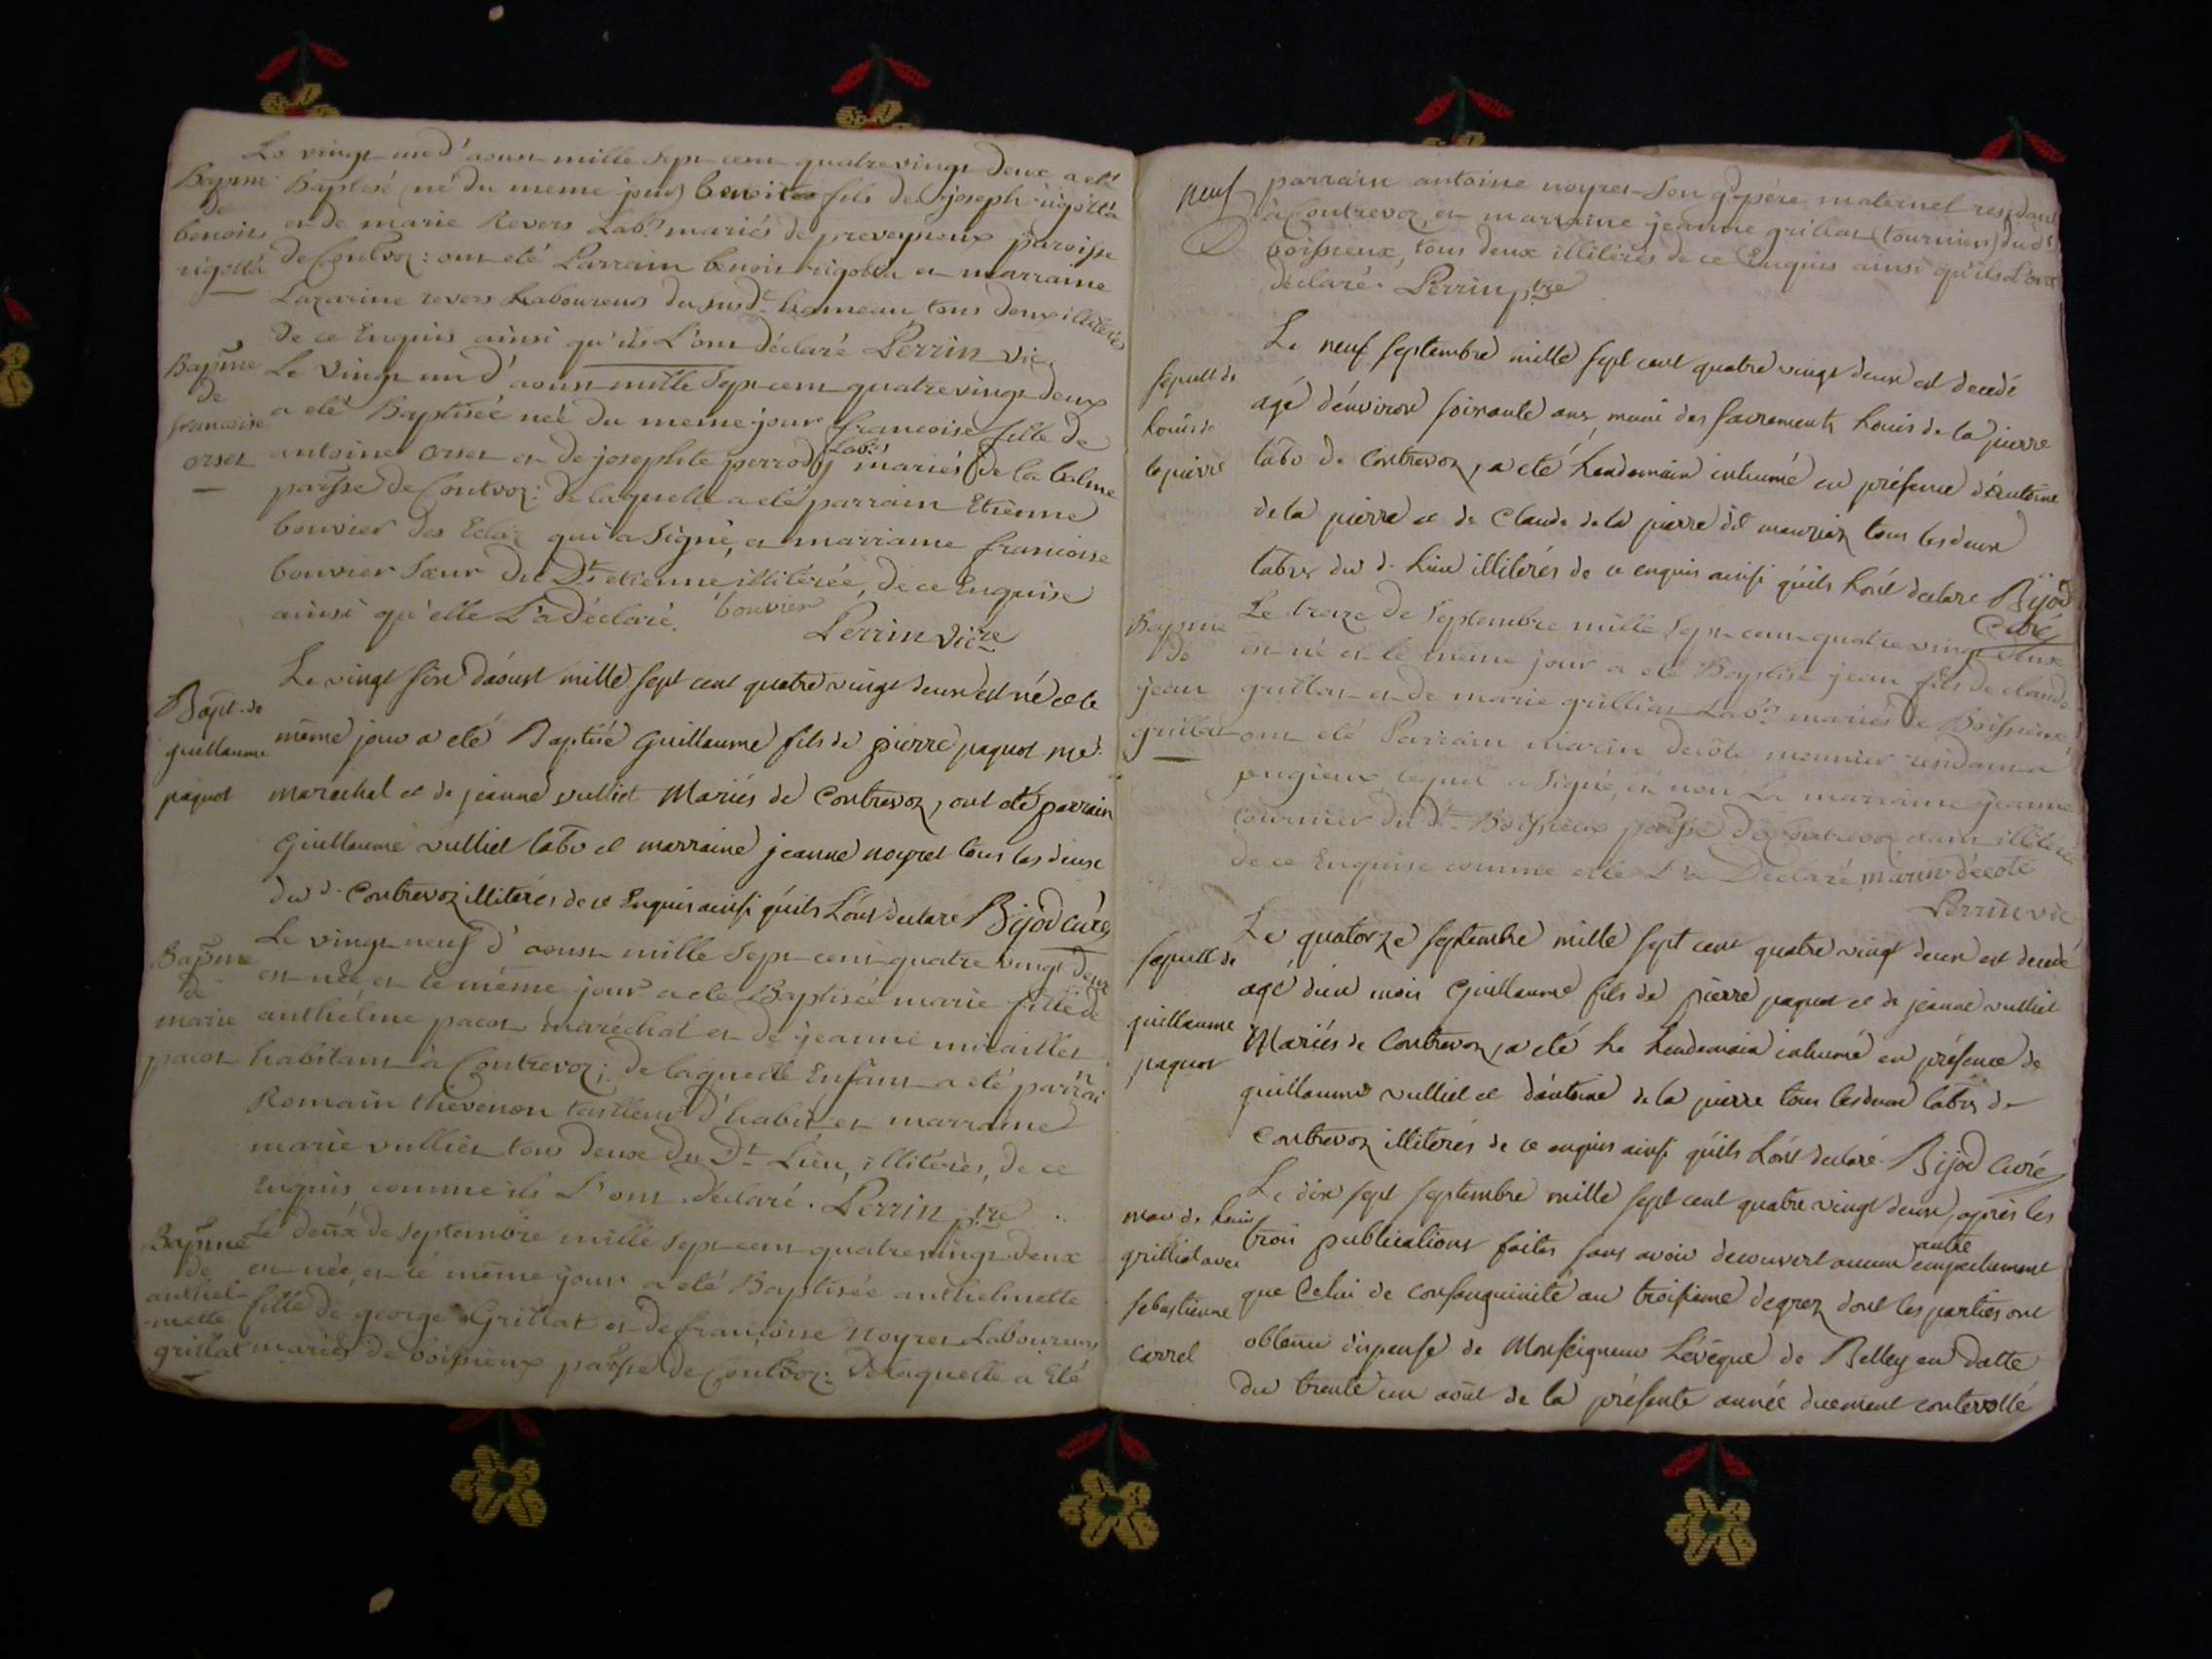 Le vingt un d'aoust mille sept cent quatre vingt deux a été
Baptisé (né du meme jour) benoit fils de joseph rigollá
et de marie Revers Lab.rs mariés de preveysieux paroisse
de Contvoz: ont eté Parrain benoit rigollá et marraine
Lazarine revers Laboureurs du susd.t hameau tous deux illiterés
de ce Enquis ainsi qu'ils L'ont déclaré Perrin vic.
Bapme
de
benoit
rigollá
Le vingt un d'aoust mille sept cent quatre vingt deux
a eté Baptisée née du meme jour francoise fille de
Lab.rs
antoine orset et de josephte perrody mariés de la balme
paisse de Contvoz: de laquelle a eté parrain Etienne
bouvier des Eclaz qui a signé, et marraine francoise
bouvier sœur du D.t etienne illiterée, de ce Enquise
ainsi qu'elle L'a déclaré. bouvier
Perrin Vic.re
Bapme
de
francoise
orset
Le vingt six d'aoust mille sept cent quatre vingt deux est né et le
même jour a eté Baptisé Guillaume fils de pierre paquot me.
marechal et de jeanne vulliet Mariés de Contrevoz, ont eté parrain
Guillaume vulliet labr et marraine jeanne noyret tous les deux
du d. Contrevoz illiterés de ce Enquis ainsi qu'ils L'ont declare Bijod Curé
Bapt. de
guillaume
paquot
Le vingt neuf d'aoust mille sept cent quatre vingt deux
est née, et le même jour a eté Baptisée marie fille de
anthelme pacot maréchal et de jeanne miraillet
habitant à Contrevoz; de laquelle Enfant a eté parrain
Romain thevenon tailleur d'habit et marraine
marie vulliet tous deux du D.t Lieu, illitérés, de ce
Enquis comme ils L'ont déclaré. Perrin p.tre
Bapme
de
marie
pacot
Le deux de septembre mille sept cent quatre vingt deux
est née, et le même jour a eté Baptisée anthelmette
fille de george Grillat et de françoise Noyret Laboureurs
mariés de boissieux paisse de Contvoz: de laquelle a Eté
Bapme
de
anthel-
mette
grillat
neuf
parrain antoine noyret son gd père maternel résidant
à Contrevoz, et marraine jeanne grillat (tournier) dud.t
boissieux, tous deux illiterés de ce Enquis ainsi qu'ils L'ont
déclaré. Perrin p.tre
Le neuf septembre mille sept cent quatre vingt deux est decedé
agé d'environ soixante ans, muni des sacrements Louis de la pierre
labr de Contrevoz, a eté Lendemain inhumé en présence d'antoine
de la pierre et de Claude de la pierre dit tous les deux
labrs du d. Lieu illiterés de ce enquis ainsi qu'ils L'ont declare Bijod
Curé
sepult de
Louis de
lapierre
Le treze de septembre mille sept cent quatre vingt deux
est né et le même jour a eté Baptisé jean fils de claude
grillat et de marie grilliat Lab.rs mariés de Boissieux,
ont eté Parrain marin decôte meunier residant à
pugieux lequel a signé, et non La marraine jeanne
tournier du d.t Boissieux paisse de Contrevoz etant illiterée
de ce Enquise comme elle L'a Déclaré marin décote
Perrin vic
Bapme
de
jean
grillat
Le quatorze septembre mille sept cent quatre vingt deux est decedé
agé d'un mois Guillaume fils de pierre paquot et de jeanne vulliet
Mariés de Contrevoz, a eté Le Lendemain inhumé en présence de
guillaume vulliet et d'antoine de la pierre tous les deux labrs de
Contrevoz illiterés de ce enquis ainsi qu'ils L'ont declaré. Bijod Curé
sepult de
guillaume
paquot
Le dix sept septembre mille sept cent quatre vingt deux, après les
trois publications faites sans avoir decouvert aucun autre empechement
que Celui de consanguinité au troisieme degrez dont les parties ont
obtenu dispense de Monseigneur Lévêque de Belley en datte
du trente un août de la présente année duement controllé
mar de Louis
grilliat avec
sebastienne
carrel